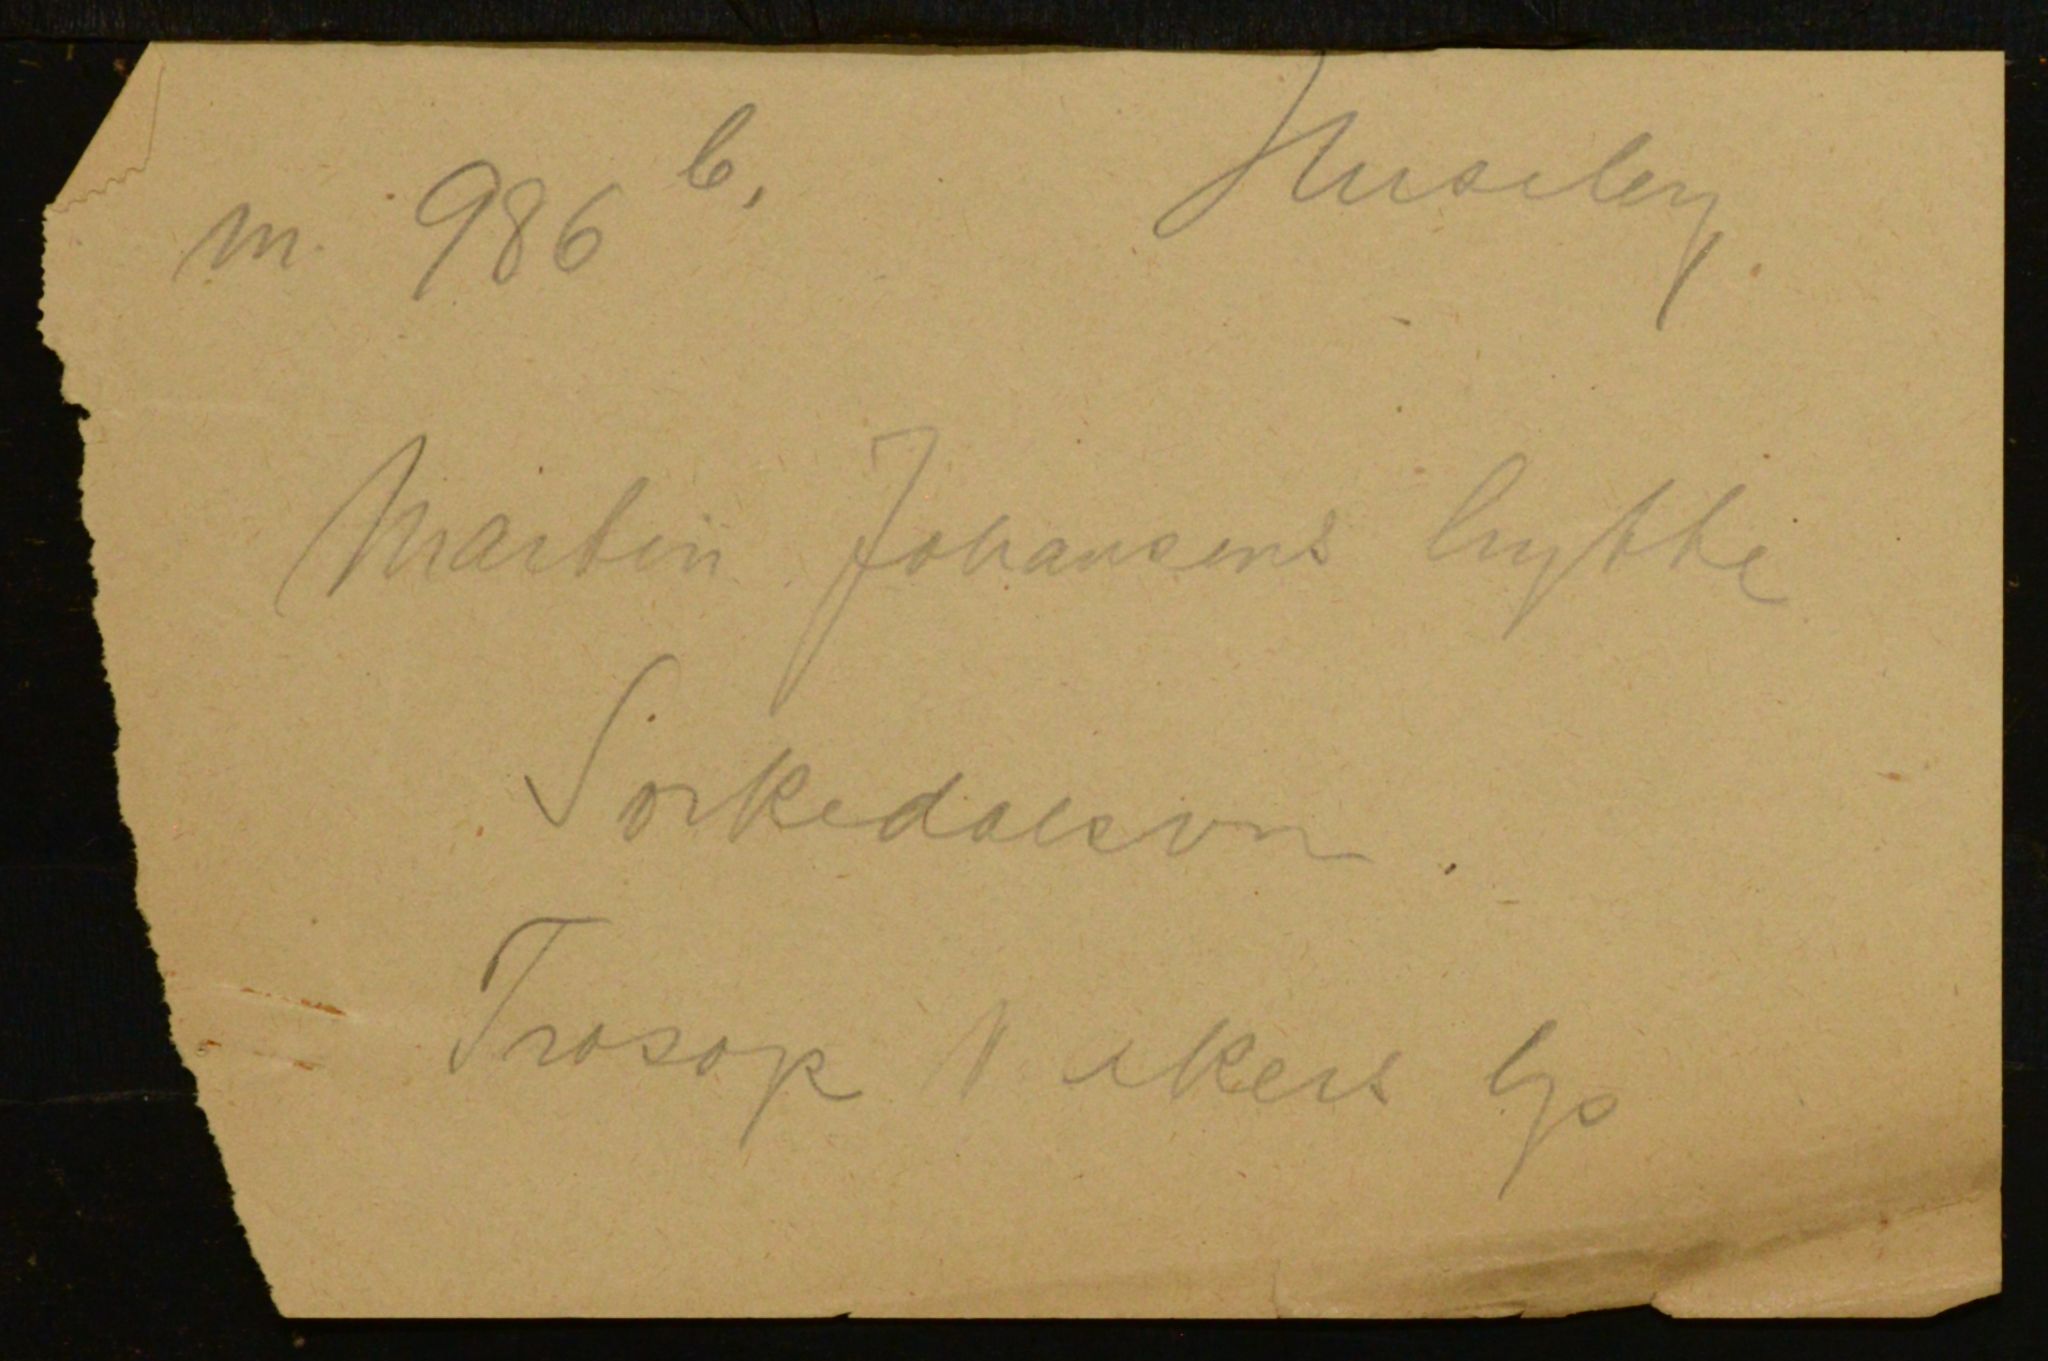 m. 986 b, Huseby
Martin Johansens hytte
Sørkedalsvn.
Trosop V. Akers Gs